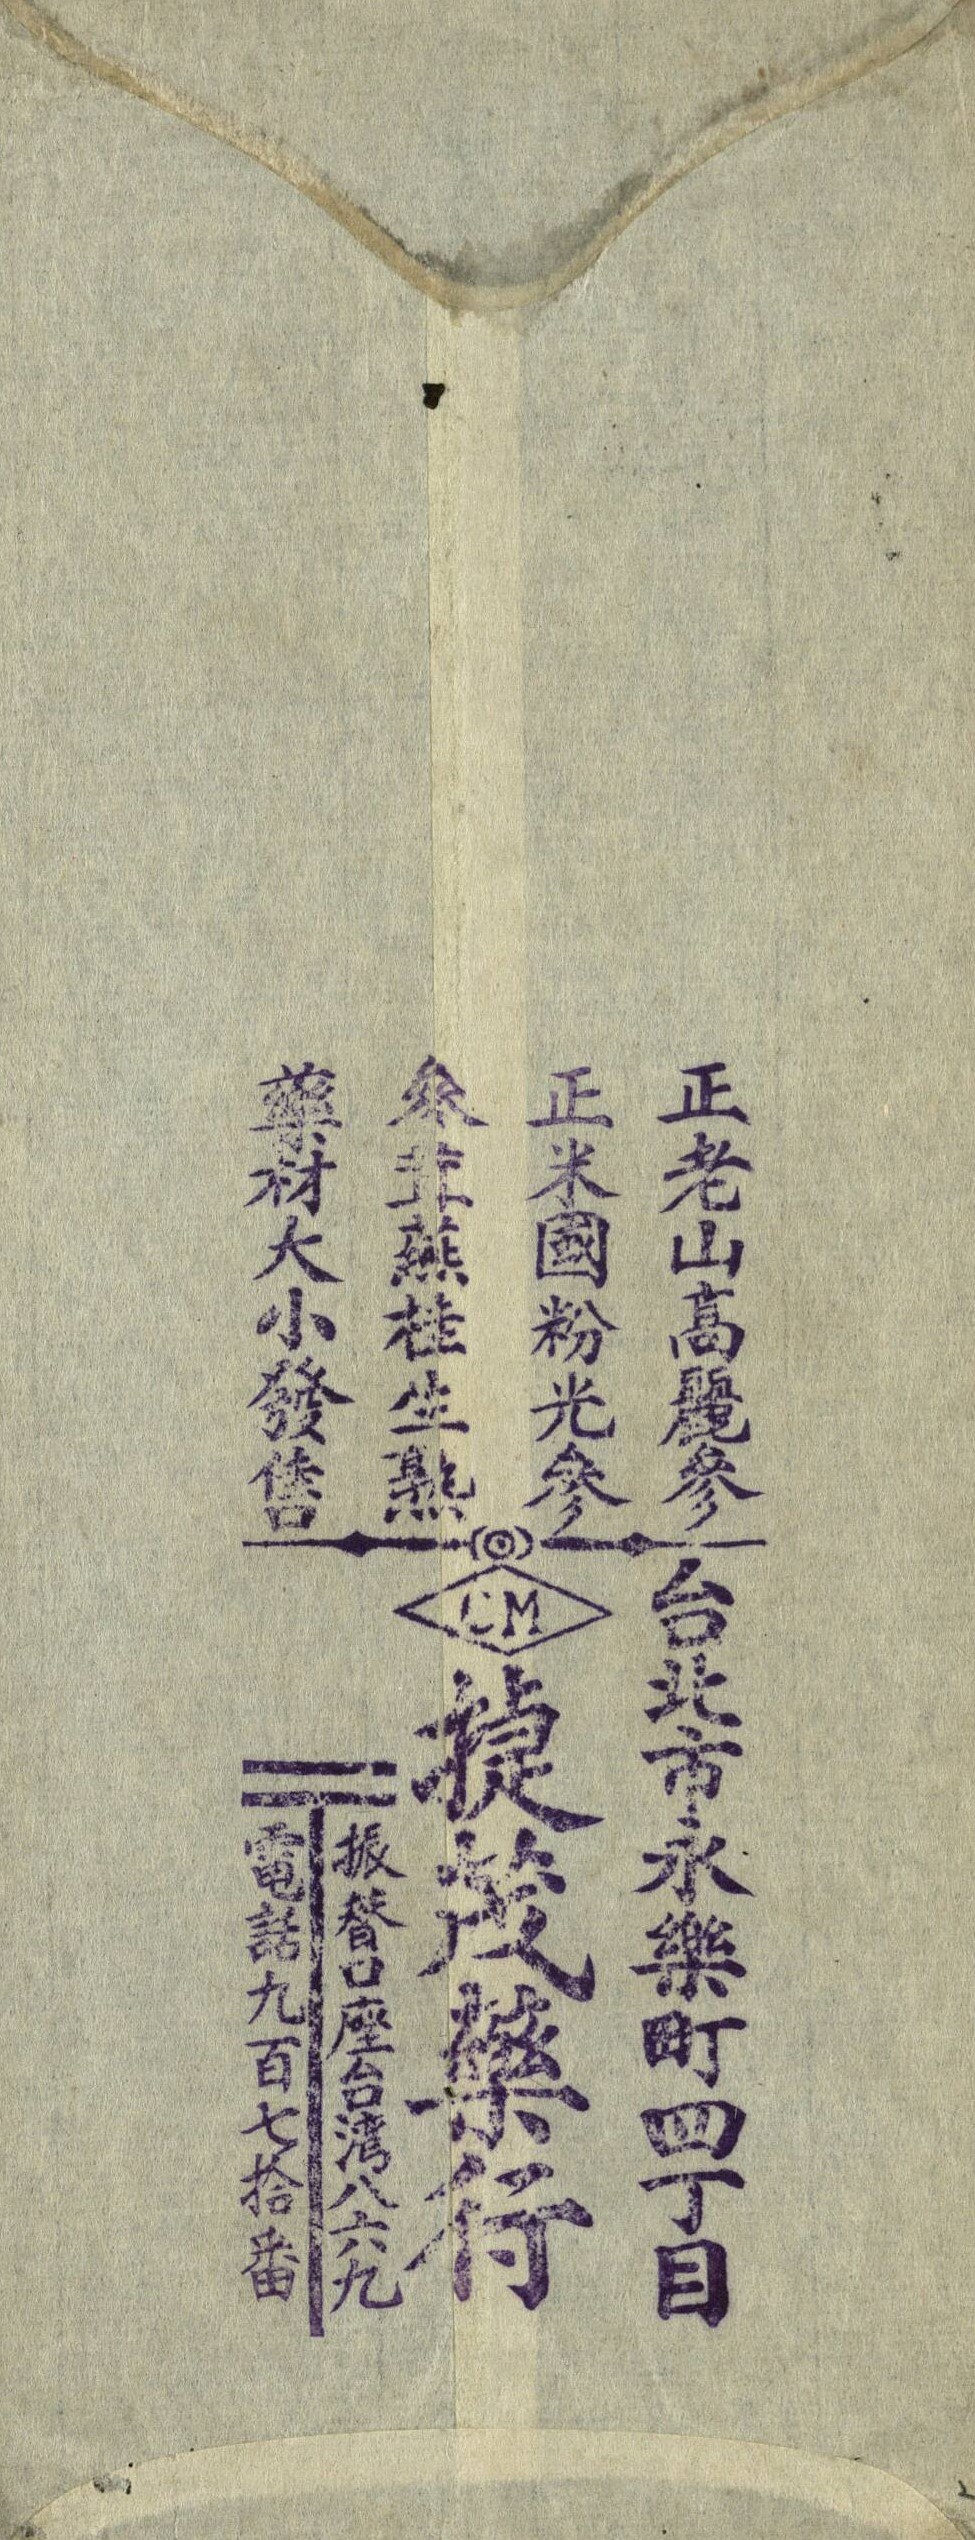 正老山高麗參
正米國粉光參
參茸燕桂生熟
藥材大小發售
台北市永樂町四丁目
CM
捷茂藥行
振替口座台湾八六九
電話九百七拾番